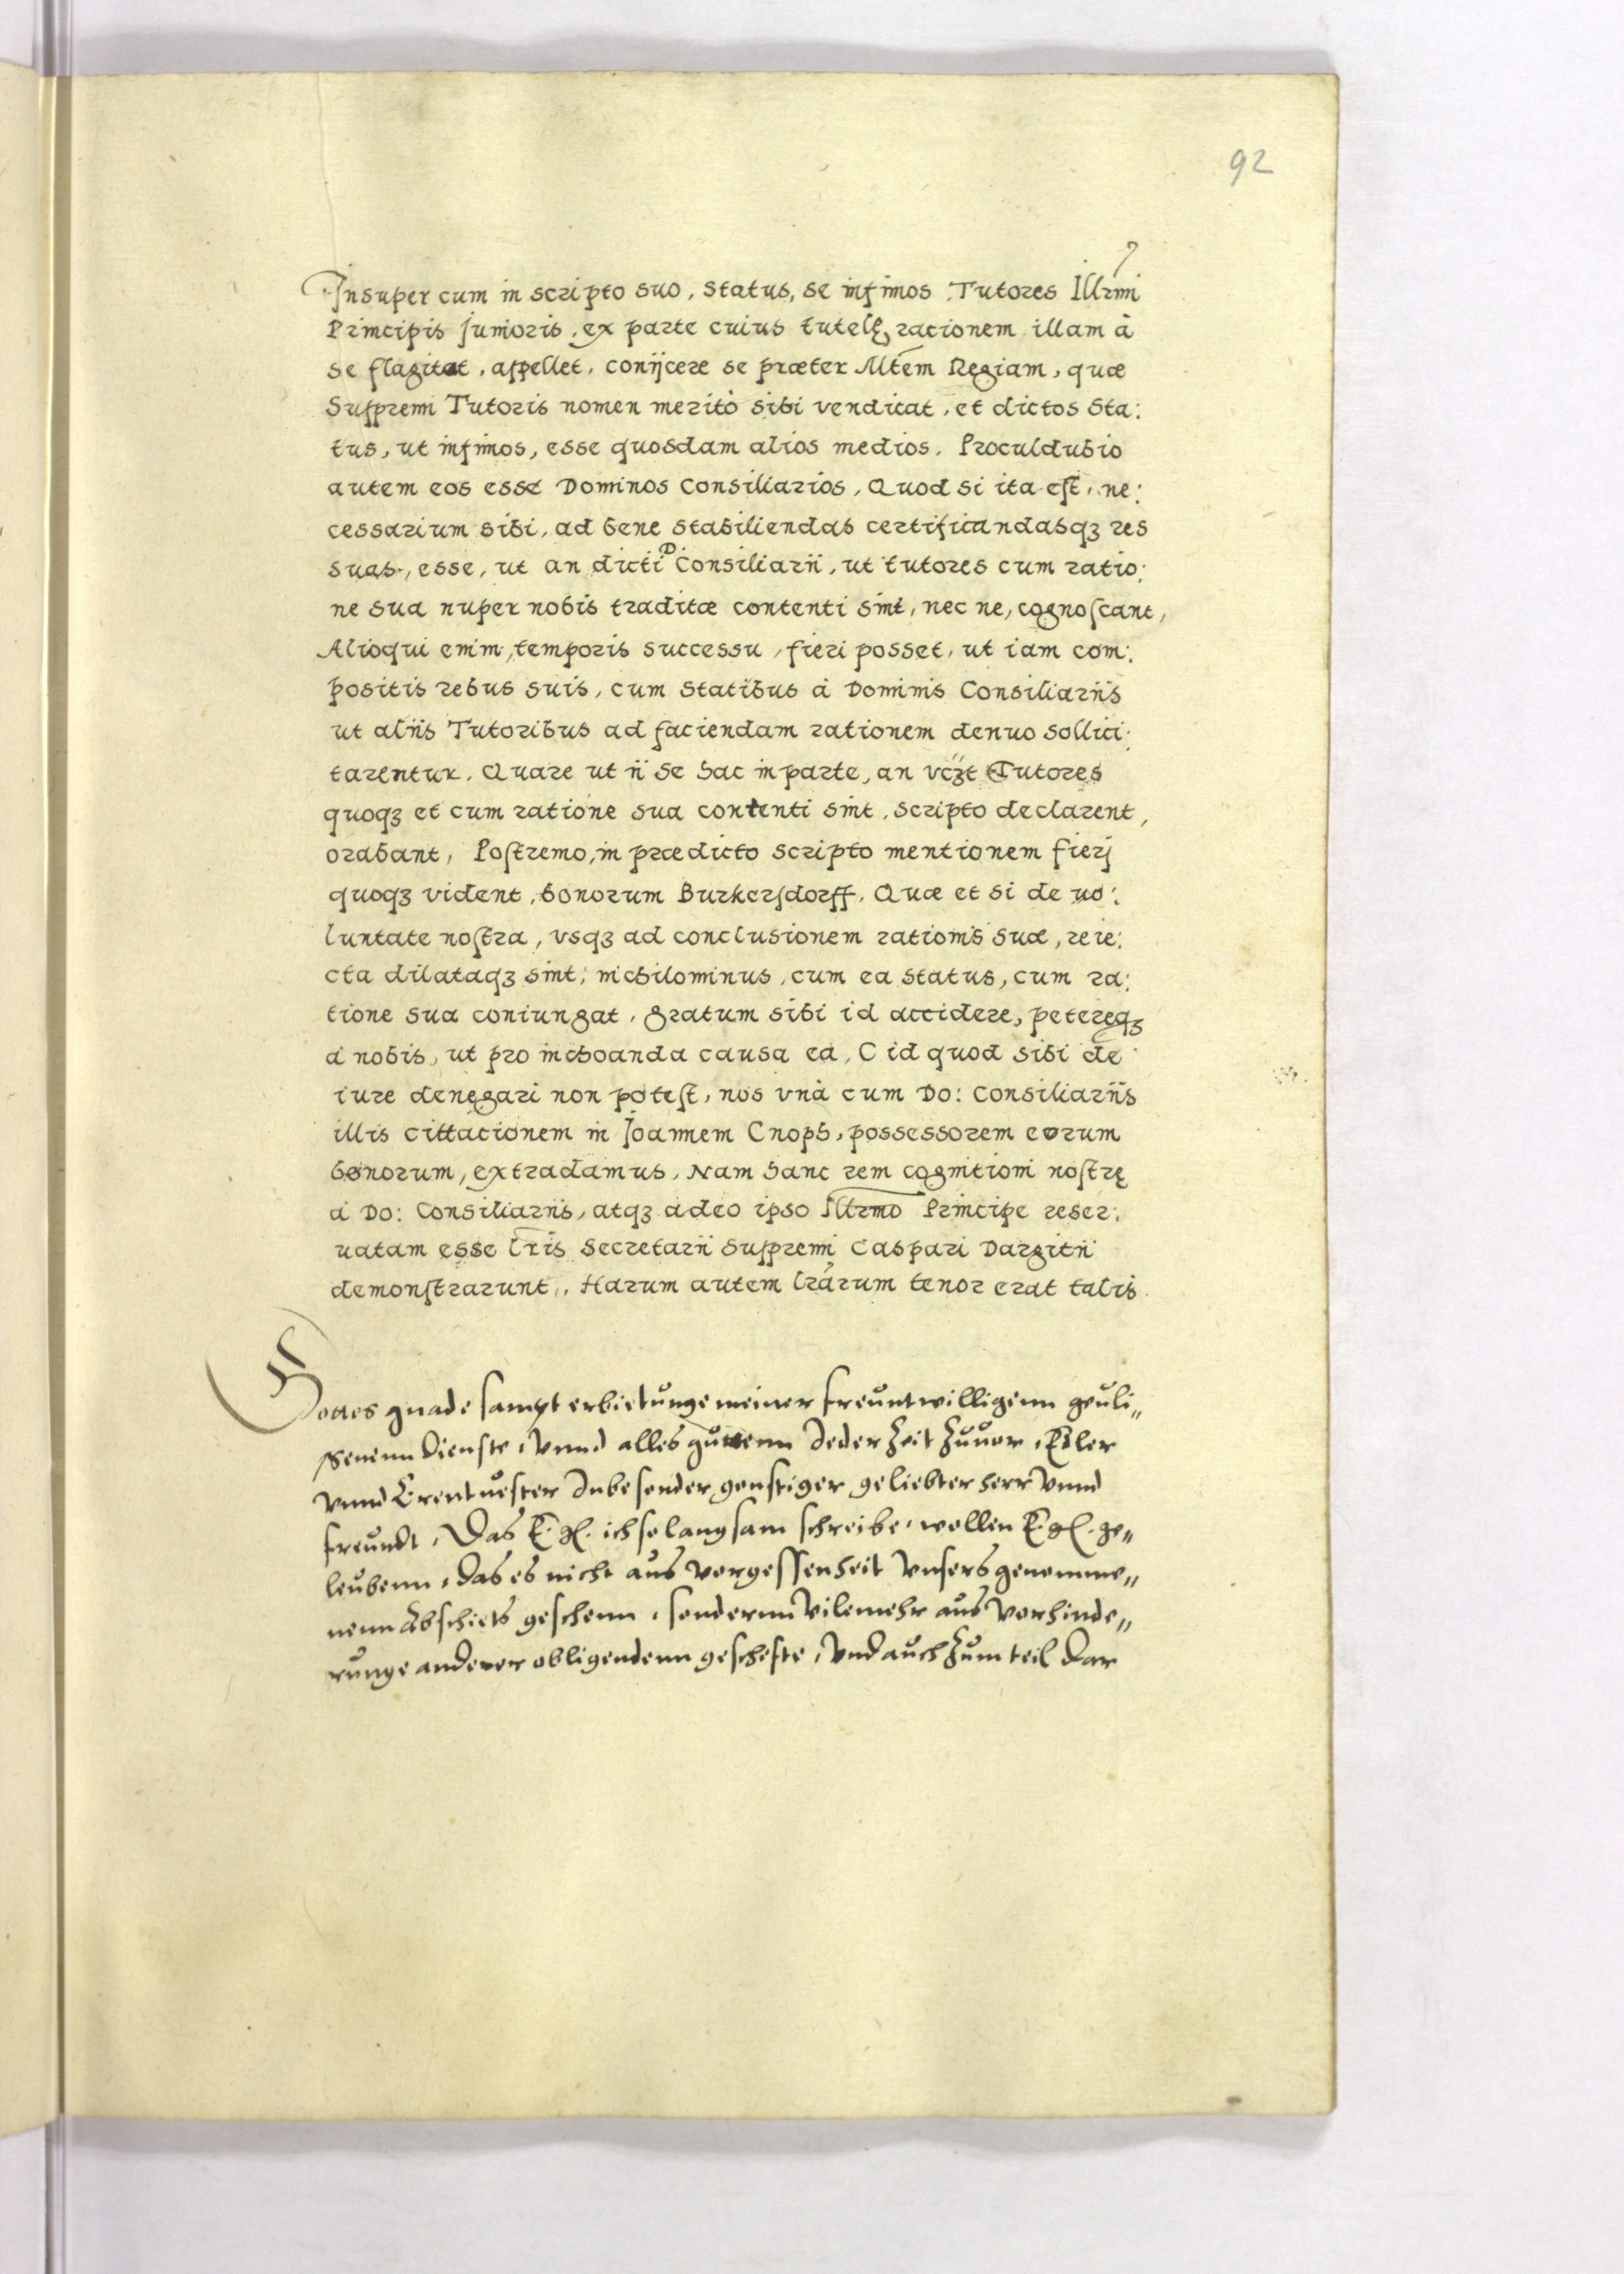 92
Insuper cum in scripto suo, status, se infimos Tutores Illrmi
Principis Junioris, ex parte cuius tutelę rationem illam à
se flagitet, appellet, conijcere se præter Mtem Regiam, quæ
Supremi Tutoris nomen meritò sibi vendicat, et dictos Sta:
tus, ut infimos, esse quosdam alios medios. Proculdubio
autem eos esse Dominos Consiliarios, Quod si ita est, ne:
cessarium sibi, ad bene stabiliendas certificandasqꝫ res
suas, esse, ut an dicti D Consiliarii, ut tutores cum ratio:
ne sua nuper nobis traditæ contenti sint, nec ne, cognoscant,
Alioqui enim, temporis successu, fieri posset, ut iam com:
positis rebus suis, cum statibus à Dominis Consiliariis
ut aliis Tutoribus ad faciendam rationem denuo sollici:
tarentur. Quare ut ii se hac in parte, an vcꝫt Tutores
quoqꝫ et cum ratione sua contenti sint, scripto declarent,
orabant, Postremo, in prædicto scripto mentionem fierj
quoqꝫ vident, bonorum Burkersdorff. Quæ et si de uo:
luntate nostra, vsqꝫ ad conclusionem rationis suæ, reie:
cta dilataqꝫ sint, nichilominus, cum ea status, cum ra:
tione sua coniungat, gratum sibi id accidere, petereqꝫ
à nobis, ut pro inchoanda causa ea, C id quod sibi de
iure denegari non potest, nos vnà cum Do: Consiliariis
illis cittacionem in Joannem Cnoph, possessorem eorum
bonorum, extradamus, Nam hanc rem cognitioni nostrę
à Do: Consiliariis, atqꝫ adeo ipso Illrmo Principe reser:
uatam esse lris Secretarii Supremi Caspari Dargitii
demonstrarunt,. Harum autem lrarum tenor erat talis.
Gottes gnade sampt erbietunge meiner freuntwilligenn geuli„
ssenenn dienste, vnnd alles guttenn Jeder Zeit Zuuor, Edler
vnnd Erentuester Inbesonder gonstiger geliebter herr vnnd
freundt, Das E. gl. ich so langsam schreibe, wollen E. gl. ge„
leubenn, das es nicht aus vorgessenheit vnsers genomme„
nenn Abschiets geschenn, sondernn Vilemehr aus vorhinde„
runge anderer obligendenn geschefte, vnd auch Zum teil dar